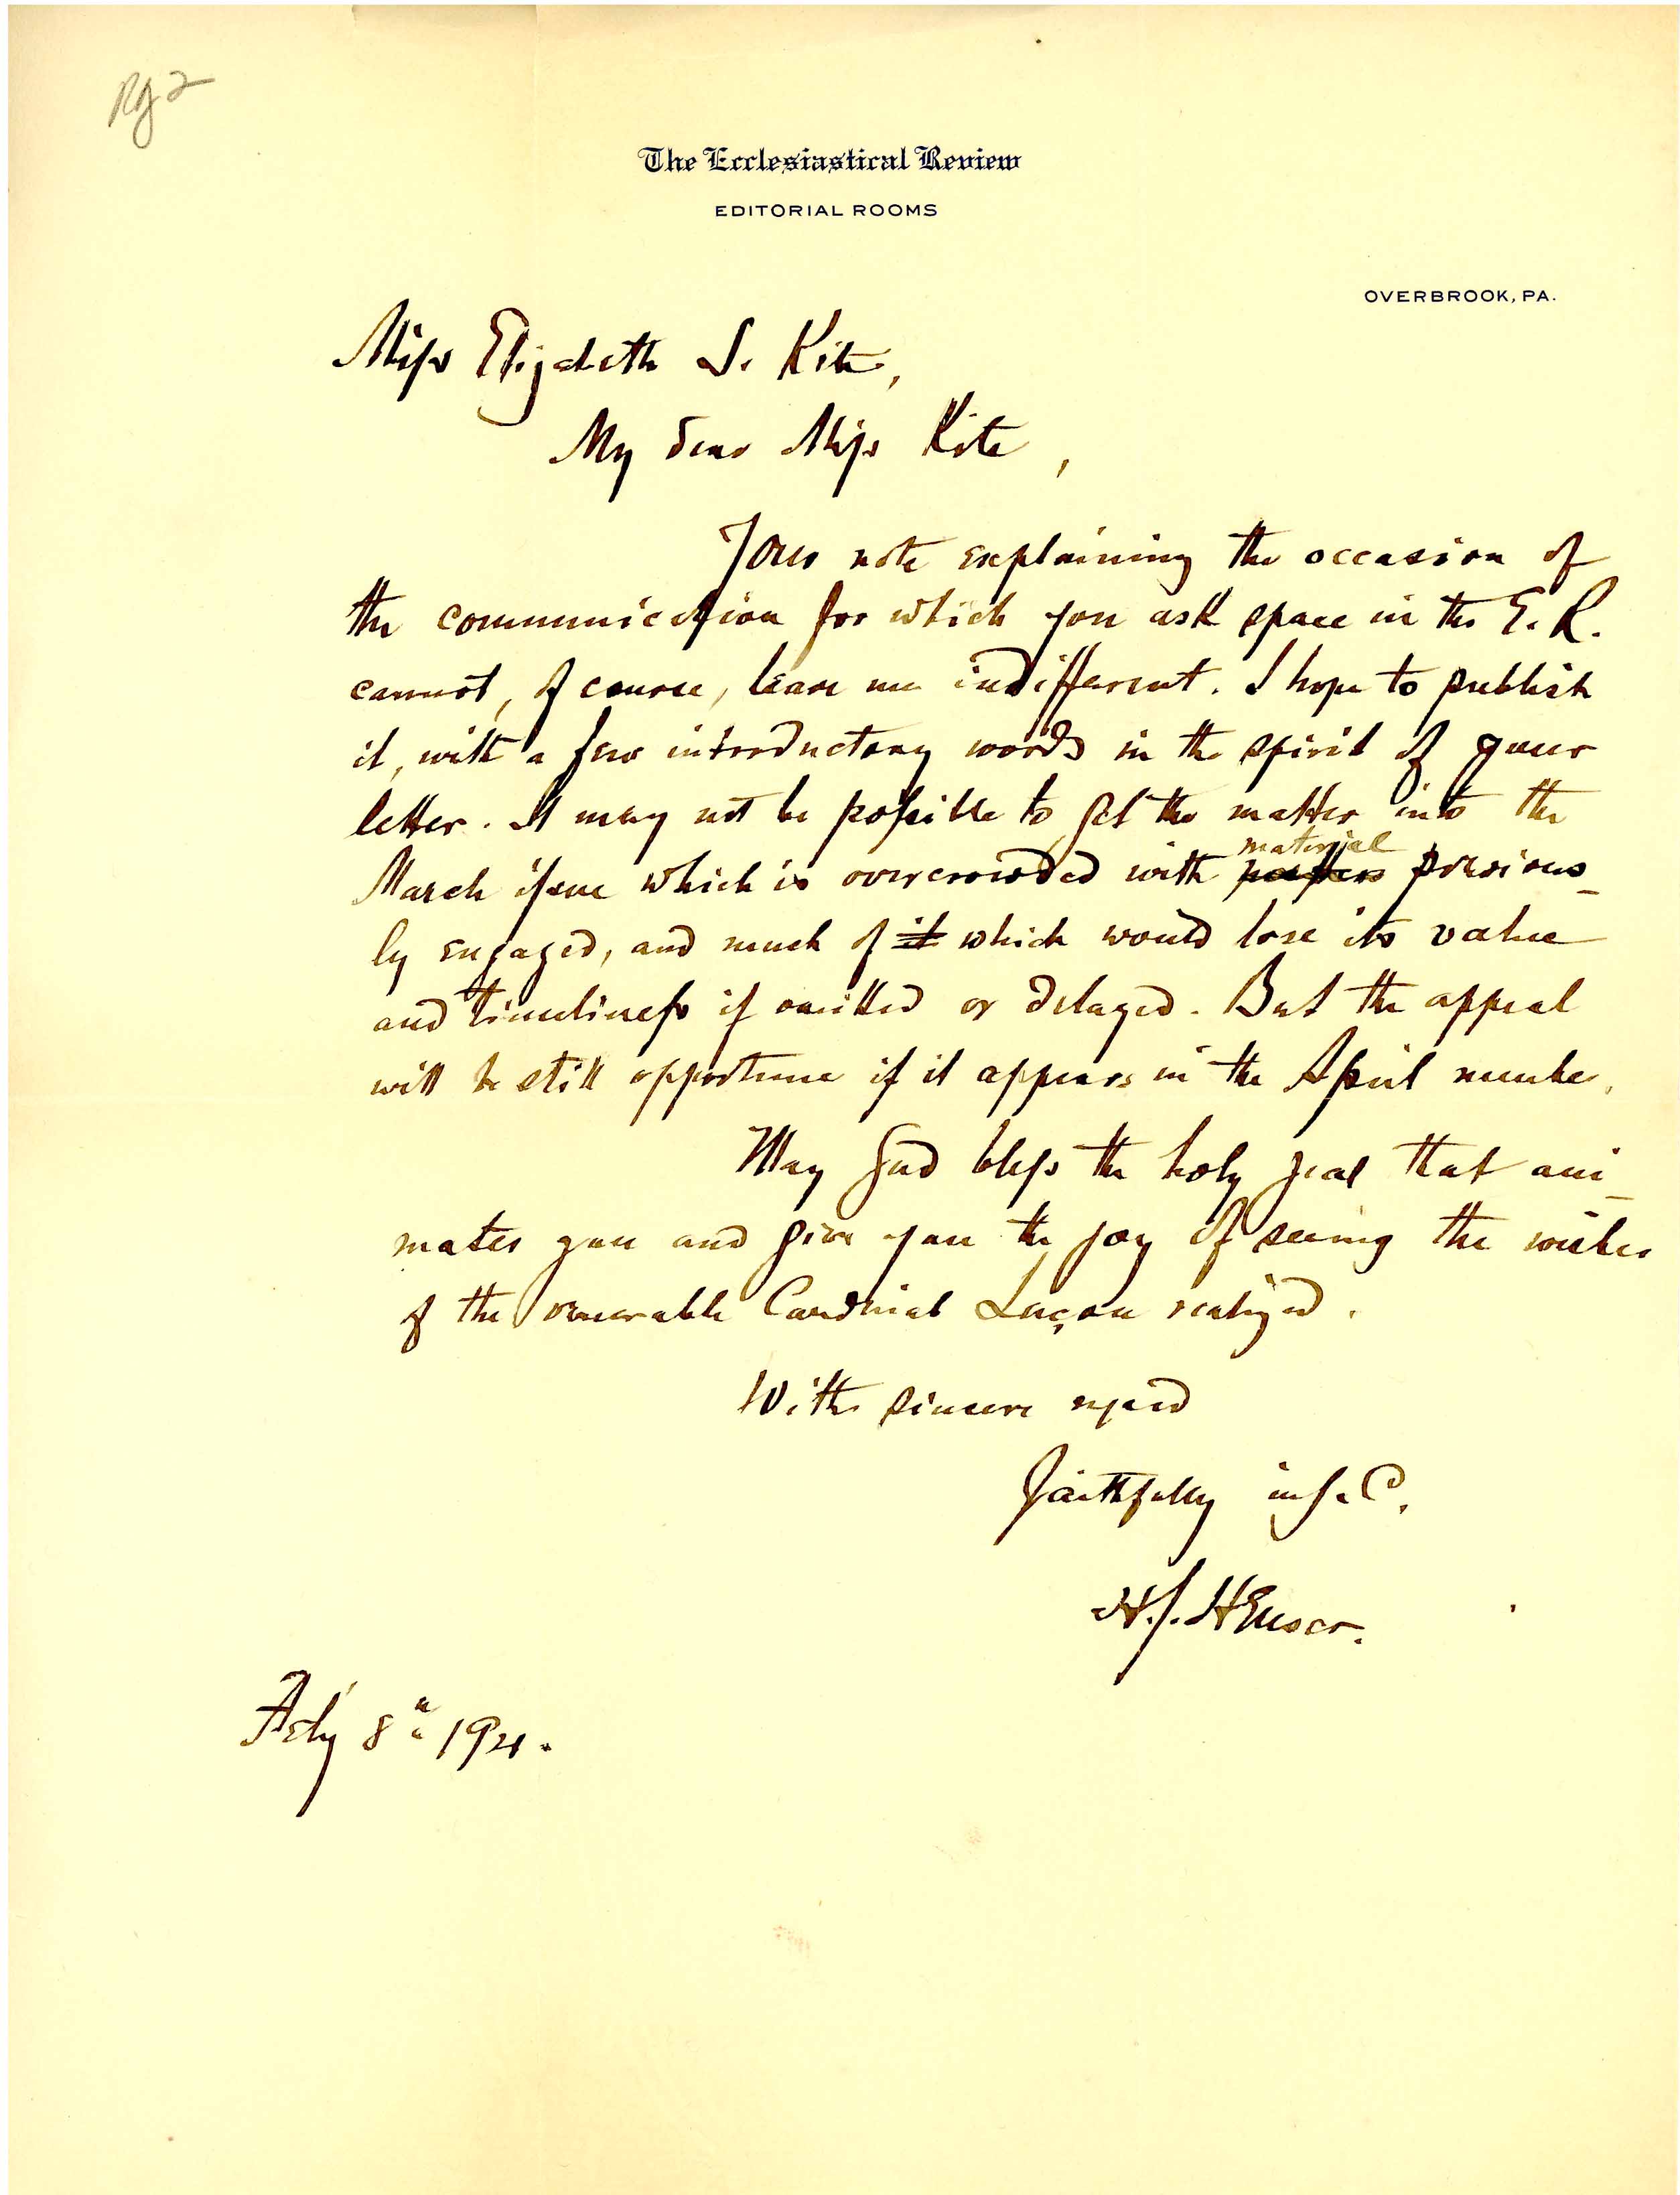 Rg 2
The Ecclesiastical Review
EDITORIAL ROOMS
OVERBROOK, PA.
Miss Elizabeth S. Kite,
My dear Miss Kite,
Your note explaining the occasion of
the communication for which you ask space in the E. R.
cannot, of course, leave me indifferent. I hope to publish
it, with a few introductory words in the spirit of your
letter. It may not be possible to get the matter into the
material
March issue which is overcrowded with previous-
ly engaged, and much of it which would lose its value
and timeliness if omitted or delayed. But the appeal
will be still opportune if it appears in the April number.
May God bless the holy zeal that ani-
mates you and give you the joy of seeing the wishes
of the venerable Cardinal Luçon realized.
With sincere regard
Faithfully in J. C.
H. J. Heuser.
Feby 8th 1921.